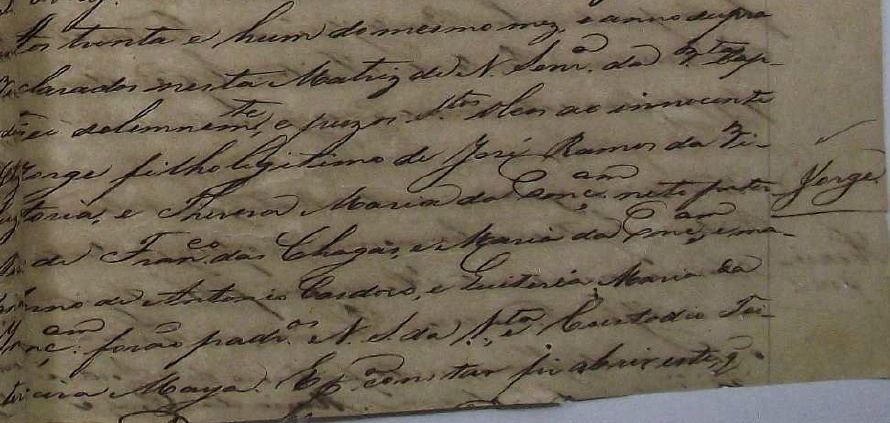 tos trinta e hum do mesmo mez, e anno supra
clarados nesta Matriz de N. Senr.ª da V.ta bap-
solemnem.te, e puz os S.tos oleos ao innocente
Jorge filho legitimo de José Ramos da Vi-
toria, e Thereza Maria da Conc.am neto pater-
de Fran.co das Chagas, e Maria da Conc.am, e ma-
terno de Antonio Cardoso, e Quiteria Maria da
Conc.am: forão padr.os N. S. da V.ta e Custodio Tei-
xeira Maya. E p.ª constar fiz abrir este, q
Jorge